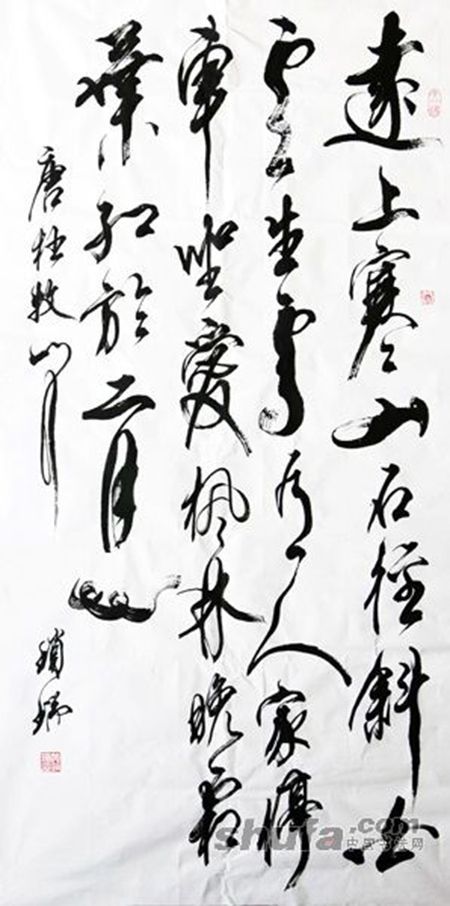 遠上寒山石徑斜白
雲生處有人家停
車坐愛楓林晚霜
葉紅於二月花
唐杜牧山行
shufa.com
中国书法网